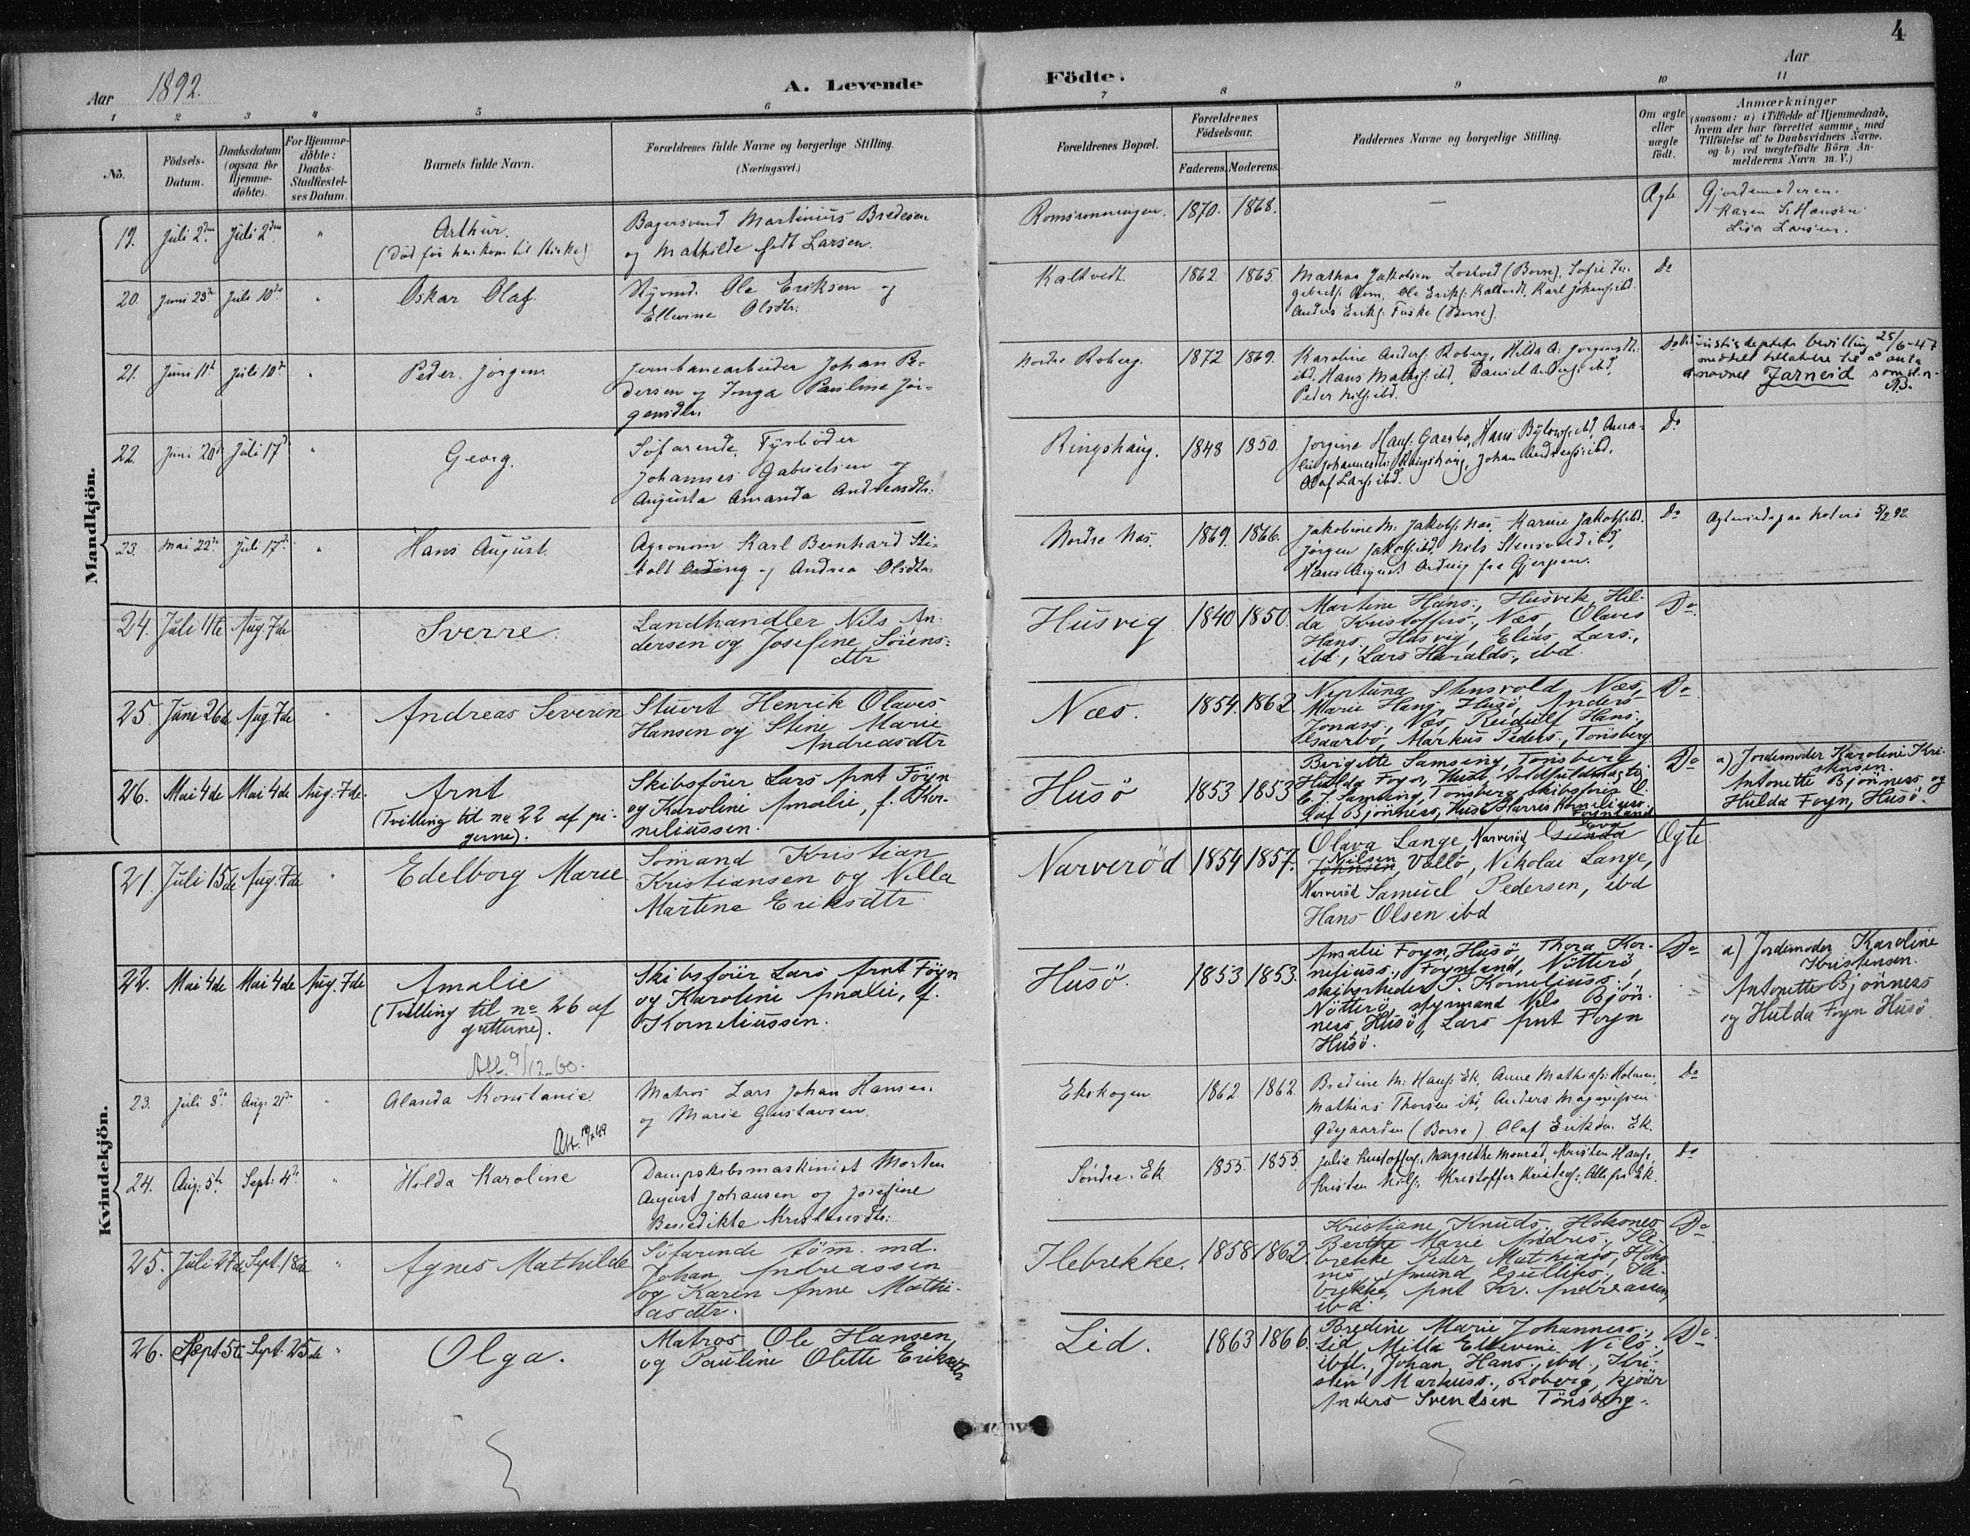 4
Aar 1892. A. Levende Födte. Aar
1 2 3 4 5 6 7 8 9 10 11
No.
Födsels-
Datum.
Daabsdatum
(ogsaa for
Hjemme-
döbte).
For Hjemme-
döbte:
Daabs-
Stadfæstel-
ses Datum.
Barnets fulde Navn.
Forældrenes fulde Navne og borgerlige Stilling.
(Næringsvei.)
Forældrenes Bopæl.
Forældrenes
Födselsaar.
Faderens. Moderens.
Faddernes Navne og borgerlige Stilling.
Om ægte
eller
uægte
födt.
Anmærkninger
(saasom: a) i Tilfælde af Hjemmedaab,
hvem der har forrettet samme, med
Tilföielse af to Daabsvidners Navne.
og b) ved uægtefödte Börn An-
melderens Navn m. V.)
Mandkjön.
19. Juli 2den Juli 2den " Arthur.
(Död før han kom til Kirke)
Bagersvend Martinius Bredesen
og Mathilde født Larsen.
Romsrønningen. 1870. 1868. — Ægte
Gjordemoderen
Karen S. Hansen
Lisa Larsen.
20. Juni 23de Juli 10de " Oskar Olaf.
Styrmd. Ole Eriksen og
Ellevine Olsdtr.
Kaltvedt. 1862. 1865.
Mathea Jakobsen (Borre). Sofie
Ole Eriks: Kaltvedt, Karl Johans: ibd.
Anders Eriks: (Borre).
Do
21. Juni 11te Juli 10de " Peder Jørgen.
Jernbanearbeider Johan Pe-
dersen og Inga Pauline Jør-
gensdtr.
Nordre Roberg. 1872 1869.
Karoline Anders: Roberg, Hilda A. Jørgensdtr:
ibd. Hans Mathis: ibd. Daniel Anders: ibd.
Peder Nils: ibd.
Do
Justisdeptets bevilling 25/6-47
meddelt tillatelse til å anta
navnet Jarneid som sl.n.
22. Juni 20de Juli 17de " Georg.
Søfarende, Fyrbøder
Johannes Gabrielsen og
Augusta Amanda Andreasdtr:
Ringshaug. 1848 1850.
Jørgine Hans: Gaarbo, Hans Bülows: ibd, Ama-
lie Johannesdtr: Ringshaug, Johan Andreas: ibd.
Olaf Lars: ibd.
Do
23. Mai 22de Juli 17de " Hans August.
Agronom Karl Bernhard Sti-
bolt Ording og Andrea Olsdtr.
Nordre Næs. 1869. 1866.
Jakobine M. Jakobs: Næs, Karine Jakobs: ibd.
Jørgen Jakobs: ibd. Nils Stensvold ibd,
Hans August Ording fra Gjerpen.
Do
Ægteviedes paa Noterö 5/2 92.
24. Juli 4de Aug. 7de Sverre.
Landhandler Nils An-
dersen og Josefine Sörens-
dtr
Husvig 1840 1850
Martine Hans., Husvik, Hil-
da Kristoffers., Næs, Olaves
Hans., Husvig, Elias Lars.,
ibd., Lars Haralds., ibd.
Do
25. June 26de Aug. 7de " Andreas Severin
Stuert Henrik Olaves
Hansen og Stine Marie
Andreasdtr
Næs. 1854. 1862
Neptuna Stensvold, Næs,
Marie Hans., Husö, Anders
Jonass., Næs, Reidulf Hans.,
Gaarbo, Markus Peders., Tönsberg
Do
26. Mai 4de Mai 4de Aug. 7de. Arnt
(Tvilling til no 22 af pi-
gerne).
Skibsförer Lars Arnt Föyn
og Karoline Amalie, f. Kor-
neliussen.
Husö 1853 1853
Brigitte Samsing, Tönsberg
Hulda Foyn, Husö,
C. J. Samsing, Tönsberg, skibsförer O-
laf Bjönness, Husö, Harris Korneliuss.,
Foynland
Do
a) Jordemoder Karoline Kri-
stensen.
Antonette Bjönness og
Hulda Foyn, Husö.
Kvindekjön.
21. Juli 15de Aug. 7de " Edelborg Marie
Sömand Kristian
Kristiansen og Nilla
Martine Eriksdtr.
Narverød 1854 1857.
Olava Lange, Narveröd, Gunda Eva
Johnsen Nilsen, Vallö, Nikolai Lange,
Narveröd Samuel Pedersen, ibd
Hans Olsen ibd
Ægte
22. Mai 4de Mai 4de Aug. 7de Amalie
(Tvilling til no 26 af
gutterne).
Skibsföier Lars Arnt Föyn
og Karoline Amalie, f.
Korneliussen.
Husö. 1853 1853.
Amalie Foyn, Husö, Thora Kor-
neliuss., Foynland, Nötterö,
skibsrheder P. Korneliuss.,
Nötterö, styrmand Nils Bjön-
ness, Husö, Lars Arnt Foyn
Husö.
Do
a) Jordemoder Karoline
Kristensen.
Antonette Bjönness
og Hulda Foyn Husö.
Att. 9/12-60.
23. Juli 8de Aug. 21de " Alanda Konstanie.
Matros Lars Johan Hansen
og Marie Gustavsen.
Ekskogen 1862 1862.
Bredine M: Hans: Ek, Anne Mathias: Holmen,
Mathias Thorsen ibd, Anders Magnussen
Ødegaarden (Borre) Olaf Eriksen Ek.
Do
Att.
24. Aug: 5te Sept: 4de " Hilda Karoline
Dampskibsmaskinist Morten
August Johansen og Josefine
Benedikte Kristensdtr:
Söndre Ek 1855. 1855.
Julie Kristoffers:, Margrethe Monrad, Kristen Hans:,
Kristen Nils:, Kristoffer Kristens:, Alle fra Ek.
Do
25. Juli 24de Sept. 18de " Agnes Mathilde
Söfarende töm. md.
Johan Andreassen
og Karen Anne Mathi-
asdtr.
Ilebrekke. 1858 1862.
Kristiane Knuds., Hoksnes
Berthe Marie Andrs., Ile-
brekke, Peder Mathiass., Hoks-
nes, Amund Gulliks., Ile-
brekke, Arnt Kr. Andreassen,
ibd
Do
26. Sept. 5te Sept. 25de " Olga.
Matros Ole Hansen
og Pauline Olette Eriksdtr
Lid. 1863 1866.
Bredine Marie Johanness.,
Lid, Milla Ellevine Nils.,
ibd., Johan Hans., ibd., Kri-
sten Markuss., Roberg, kjöier
Anders Svendsen Tönsberg.
Do